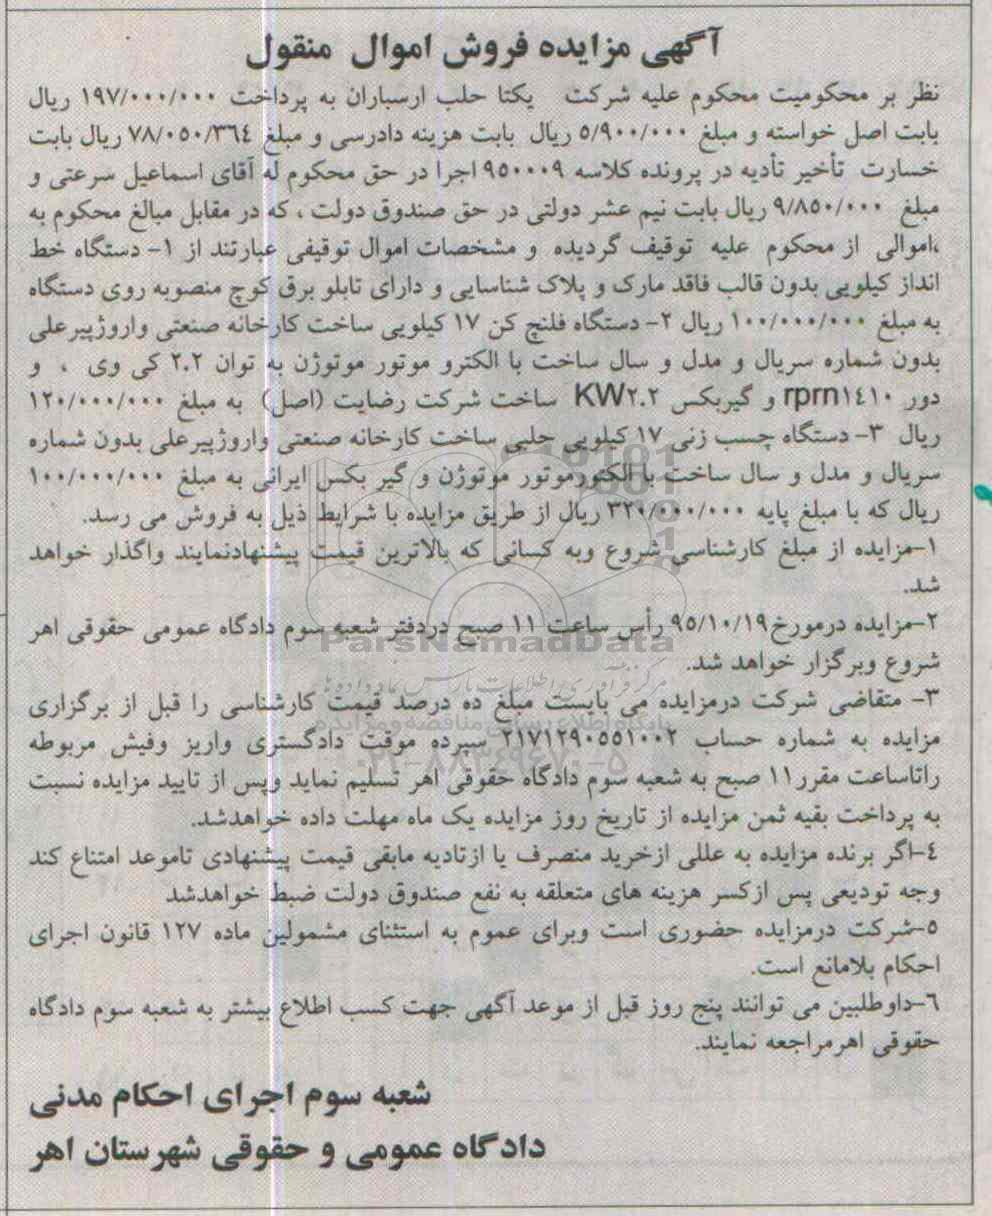 آگهی مزایده فروش اموال منقول
نظر بر محکومیت محکوم علیه شرکت یکتا حلب ارسباران به پرداخت ۱۹۷/۰۰۰/۰۰۰ ریال
بابت اصل خواسته و مبلغ ۵/۹۰۰/۰۰۰ ریال بابت هزینه دادرسی و مبلغ ۷۸/۰۵۰/۳۶۴ ریال بابت
خسارت تأخیر تأدیه در پرونده کلاسه ۹۵۰۰۰۹ اجرا در حق محکوم له آقای اسماعیل سرعتی و
مبلغ ۹/۸۵۰/۰۰۰ ریال بابت نیم عشر دولتی در حق صندوق دولت ، که در مقابل مبالغ محکوم به
،اموالی از محکوم علیه توقیف گردیده و مشخصات اموال توقیفی عبارتند از ۱- دستگاه خط
انداز کیلویی بدون قالب فاقد مارک و پلاک شناسایی و دارای تابلو برق کوچ منصوبه روی دستگاه
به مبلغ ۱۰۰/۰۰۰/۰۰۰ ریال ۲- دستگاه فلنچ کن ۱۷ کیلویی ساخت کارخانه صنعتی واروژپیرعلی
بدون شماره سریال و مدل و سال ساخت با الکترو موتور موتوژن به توان ۲.۲ کی وی ، و
دور rprn۱۴۱۰ و گیربکس KW۲.۲ ساخت شرکت رضایت (اصل) به مبلغ ۱۲۰/۰۰۰/۰۰۰
ریال ۳- دستگاه چسب زنی ۱۷ کیلویی حلبی ساخت کارخانه صنعتی واروژپیرعلی بدون شماره
سریال و مدل و سال ساخت با الکتورموتور موتوژن و گیر بکس ایرانی به مبلغ ۱۰۰/۰۰۰/۰۰۰
ریال که با مبلغ پایه ۳۲۰/۰۰۰/۰۰۰ ریال از طریق مزایده با شرایط ذیل به فروش می رسد.
۱-مزایده از مبلغ کارشناسی شروع وبه کسانی که بالاترین قیمت پیشنهادنمایند واگذار خواهد
شد.
۲-مزایده درمورخ۹۵/۱۰/۱۹ رأس ساعت ۱۱ صبح دردفتر شعبه سوم دادگاه عمومی حقوقی اهر
ParsNamadData
شروع وبرگزار خواهد شد.
مرکز فرآوری اطلاعات پارس نماد داده ها
۳- متقاضی شرکت درمزایده می بایست مبلغ ده درصد قیمت کارشناسی را قبل از برگزاری
پایگاه اطلاع رسانی مناقصه و مزایده
مزایده به شماره حساب ۲۱۷۱۲۹۰۵۵۱۰۰۲ سپرده موقت دادگستری واریز وفیش مربوطه
۰۲۱-۸۸۳۴۹۶۷۰-۵
راتاساعت مقرر۱۱ صبح به شعبه سوم دادگاه حقوقی اهر تسلیم نماید وپس از تایید مزایده نسبت
به پرداخت بقیه ثمن مزایده از تاریخ روز مزایده یک ماه مهلت داده خواهدشد.
۴-اگر برنده مزایده به عللی ازخرید منصرف یا ازتادیه مابقی قیمت پیشنهادی تاموعد امتناع کند
وجه تودیعی پس ازکسر هزینه های متعلقه به نفع صندوق دولت ضبط خواهدشد
۵-شرکت درمزایده حضوری است وبرای عموم به استثنای مشمولین ماده ۱۲۷ قانون اجرای
احکام بلامانع است.
۶-داوطلبین می توانند پنج روز قبل از موعد آگهی جهت کسب اطلاع بیشتر به شعبه سوم دادگاه
حقوقی اهرمراجعه نمایند.
شعبه سوم اجرای احکام مدنی
دادگاه عمومی و حقوقی شهرستان اهر